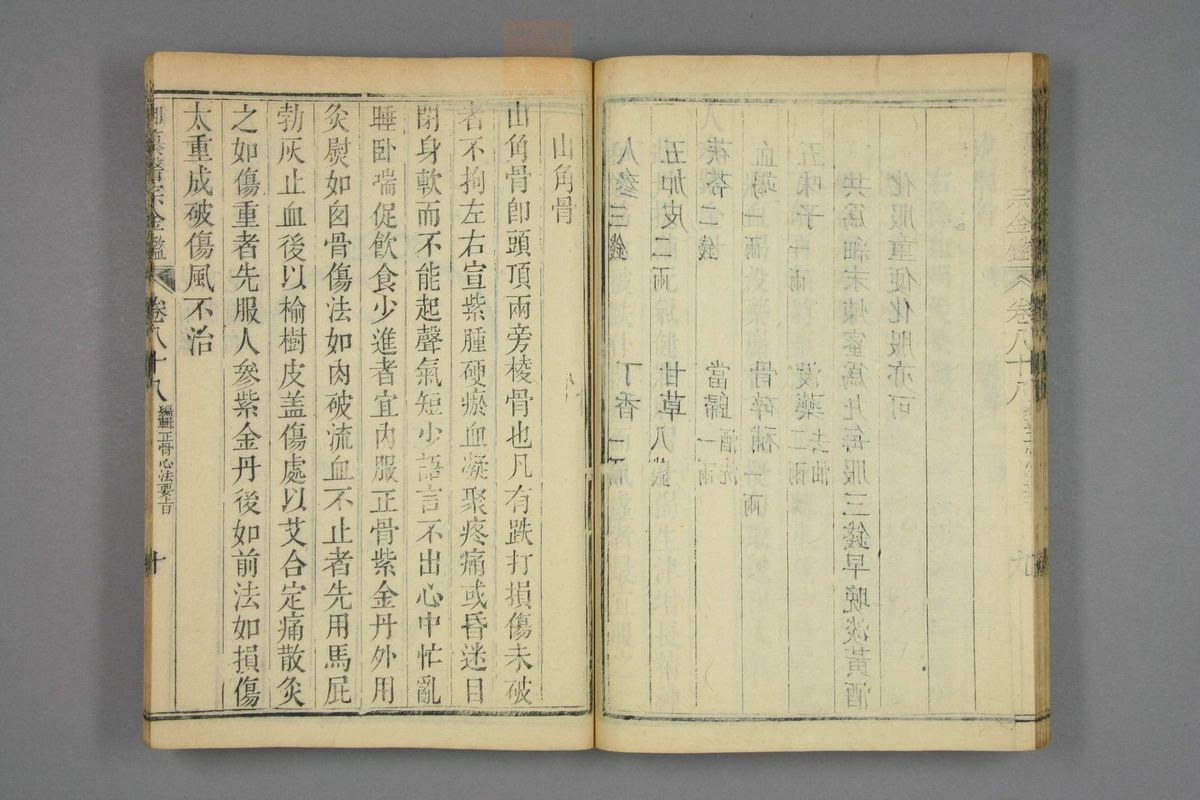 人參三錢 丁香一兩
五加皮二兩 甘草八錢
茯苓二錢 當歸酒洗一兩
血竭一兩 骨碎補一兩
五味子一兩 沒藥去油二兩
共爲細末煉蜜爲丸每服三錢早晚淡黃酒
化服童便化服亦可
宗金鑑 卷八十八
九
山角骨
山角骨卽頭頂兩旁棱骨也凡有跌打損傷未破
者不拘左右宣紫腫硬瘀血凝聚疼痛或昏迷目
閉身軟而不能起聲氣短少語言不出心中忙亂
睡卧喘促飲食少進者宜內服正骨紫金丹外用
灸熨如囟骨傷法如肉破流血不止者先用馬屁
勃灰止血後以榆樹皮盖傷處以艾合定痛散灸
之如傷重者先服人參紫金丹後如前法如損傷
太重成破傷風不治
御纂醫宗金鑑 卷八十八 編輯正骨心法要旨 十